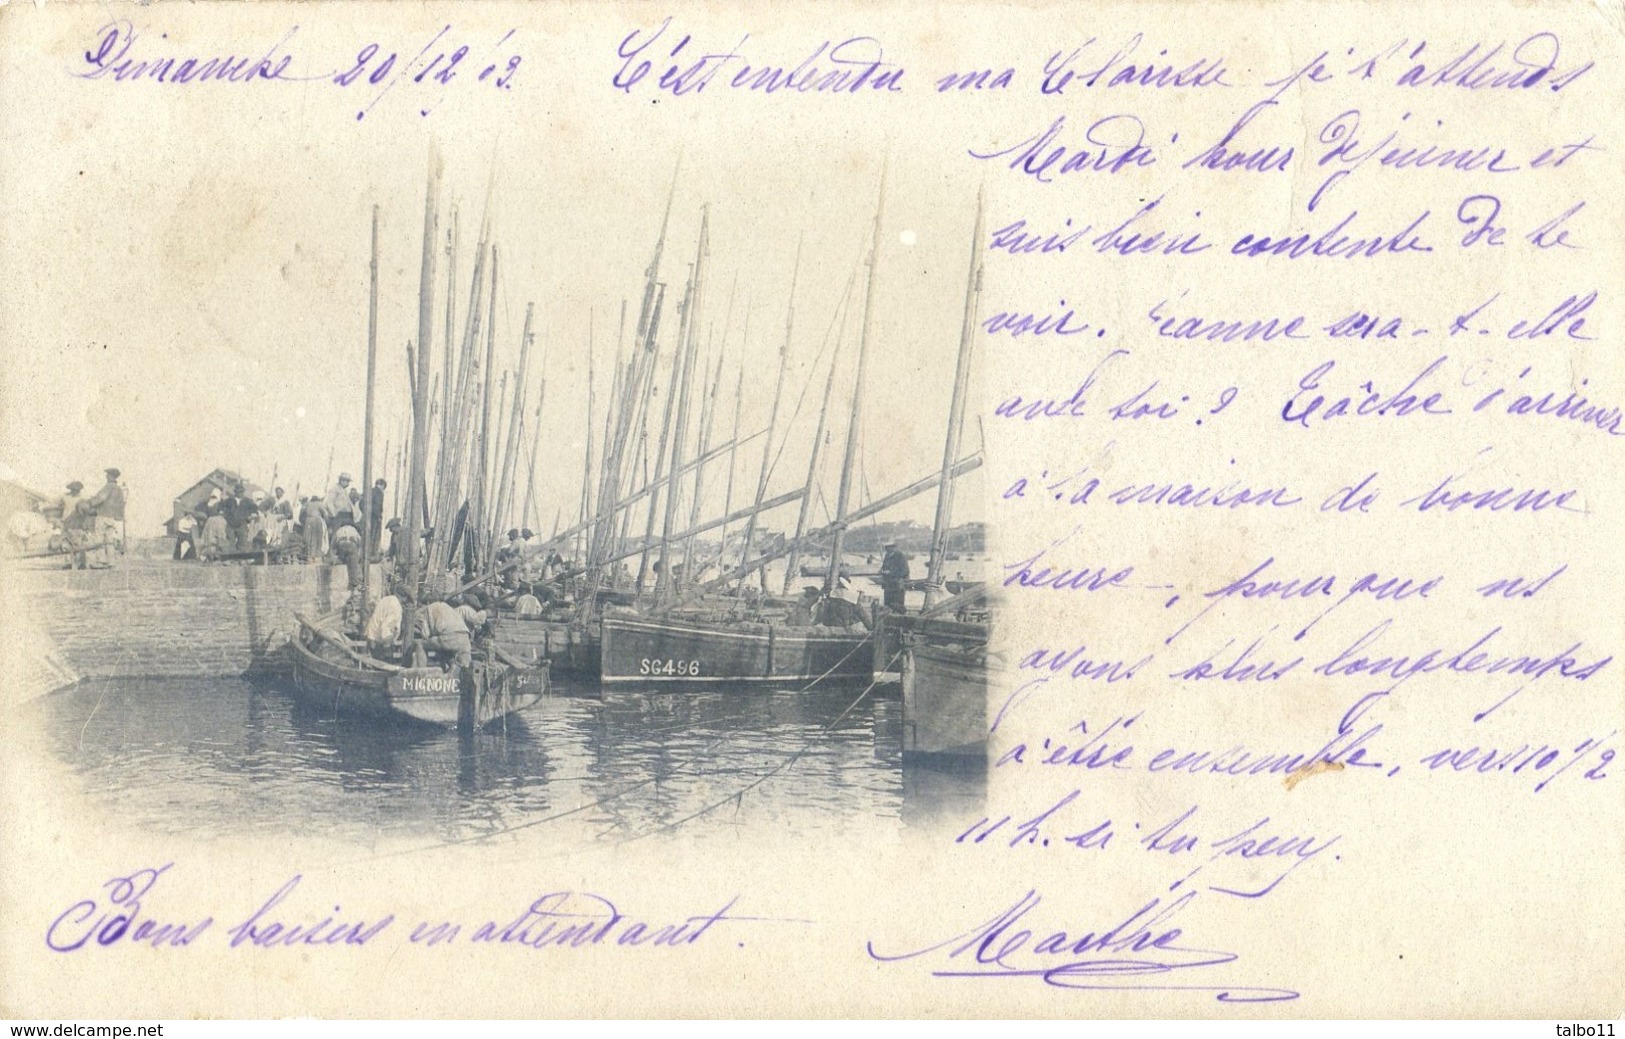 Dimanche 20/12/03. C'est entendu ma Clairsse je t'attends
Mardi pour déjeuner et
suis bien contente de te
voir. Jeanne sera-t-elle
avec toi? Tâche d'arriver
à la maison de bonne
heure-, pour que ns
ayons plus longtemps
à être ensemble, vers 10 1/2
11 h. si tu peux.
Bons baisers en attendant.
Marthe
MIGNONE
SG496
www.delcampe.net
talbo11